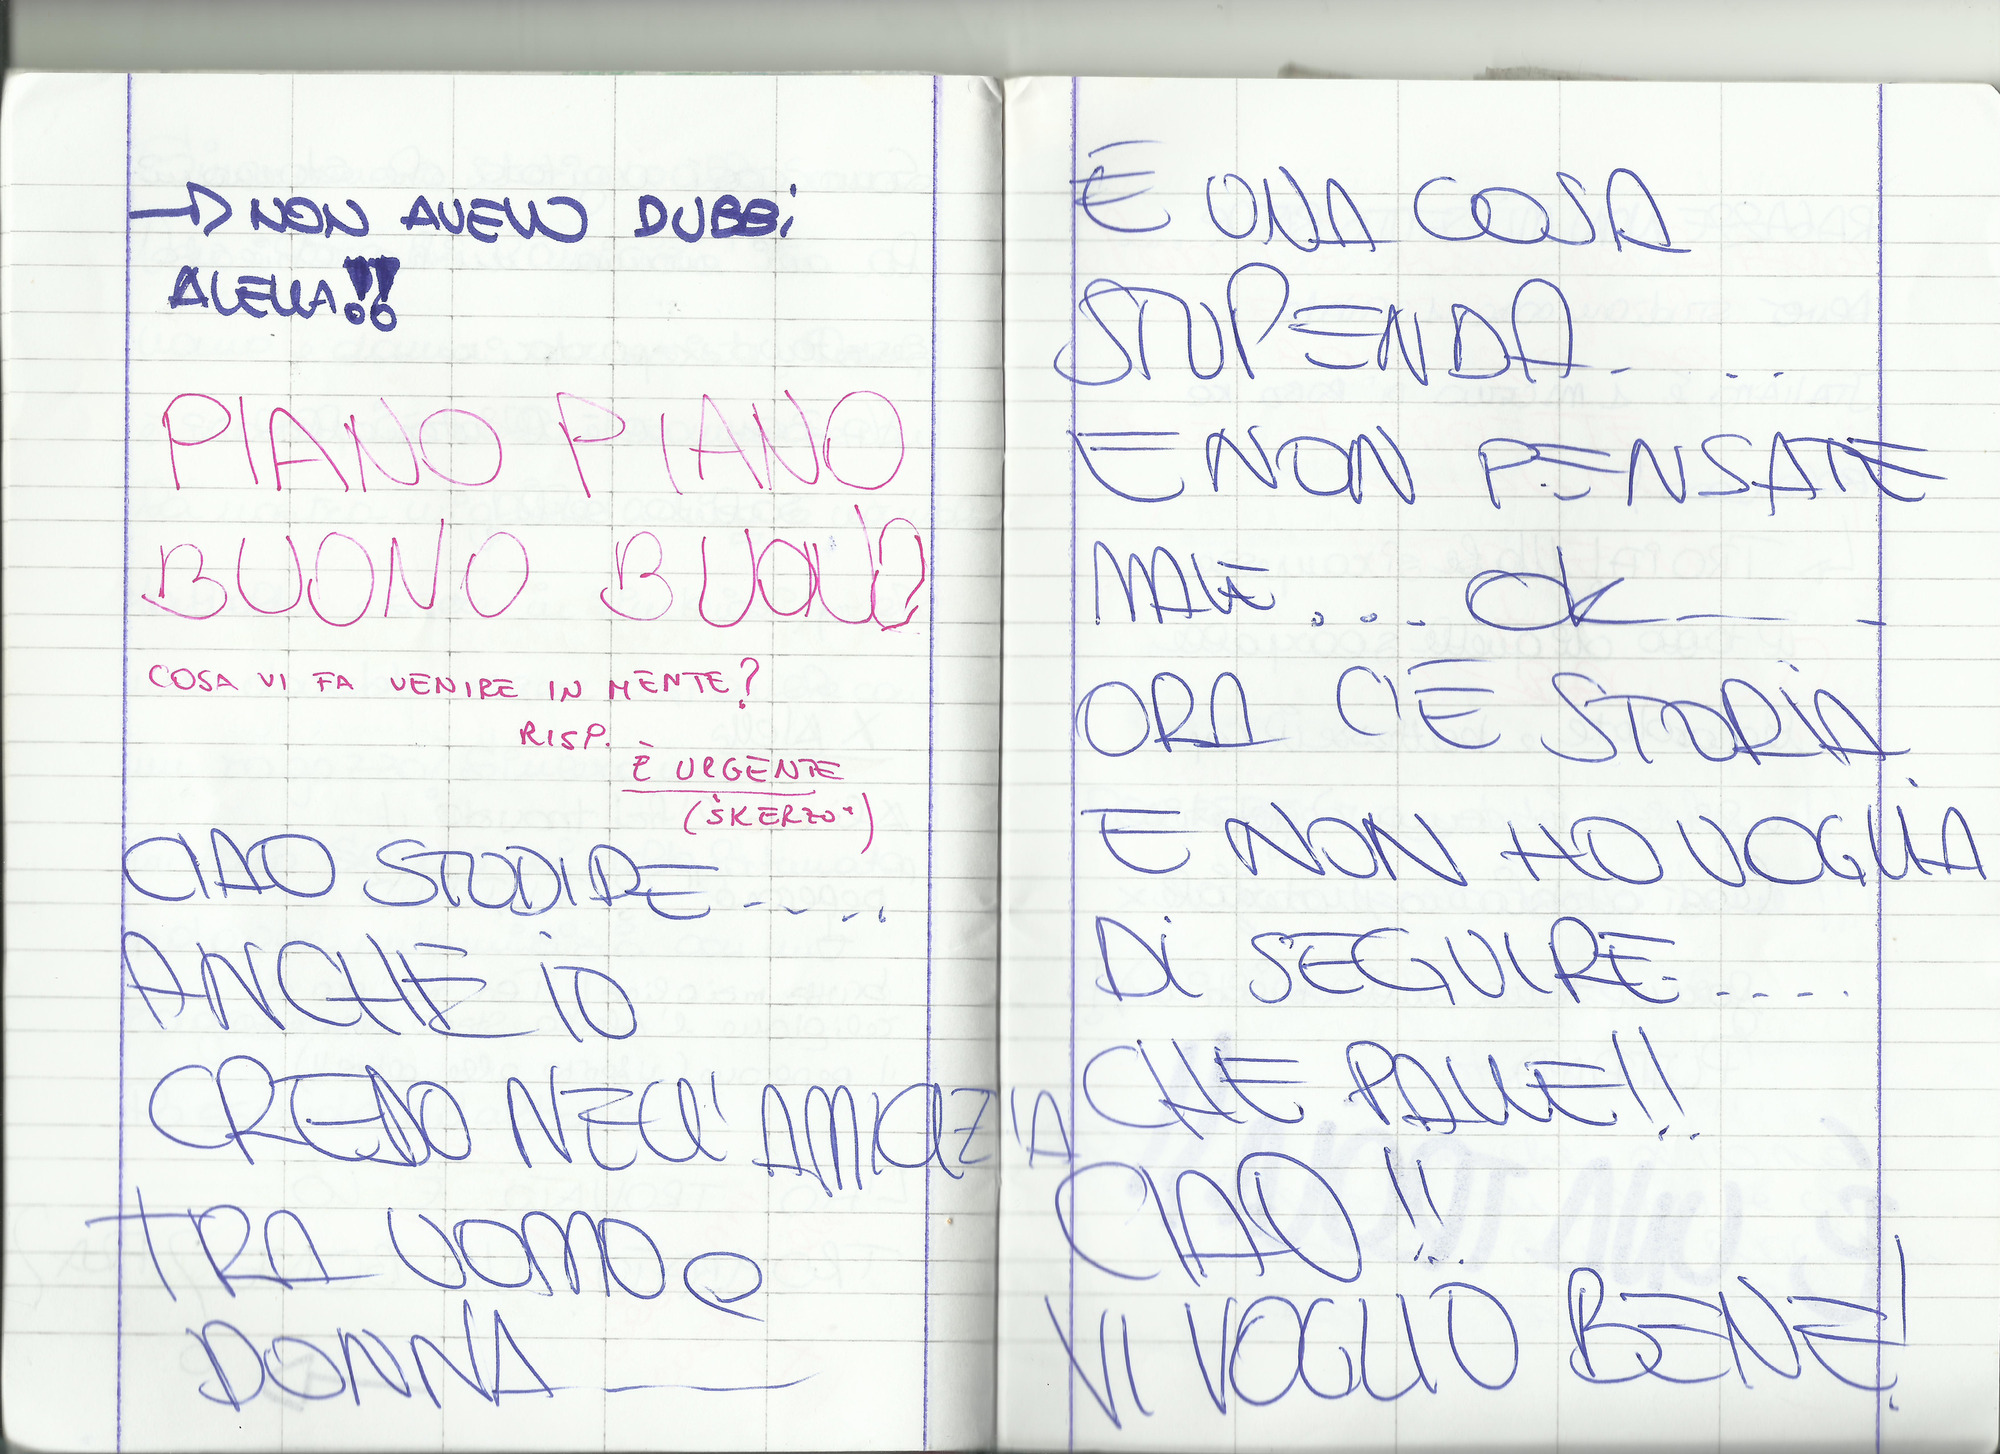 → NON AVEVO DUBBi
ALELLA!!
PIANO PIANO
BUONO BUONO
COSA VI FA VENIRE IN MENTE?
RISP.
È URGENTE
(SKERZO*)
CIAO STUDIRE....
ANCHE iO
CREDO NELL'AMICIZIA
TRA UOMO e
DONNA
È UNA COSA
STUPENDA....
E NON PENSATE
MALE.... Ok
ORA C'È STORiA
E NON HO VOGLiA
Di SEGUIRE....
CHE PALLE!!
CIAO!!
VI VOGLIO BENE!